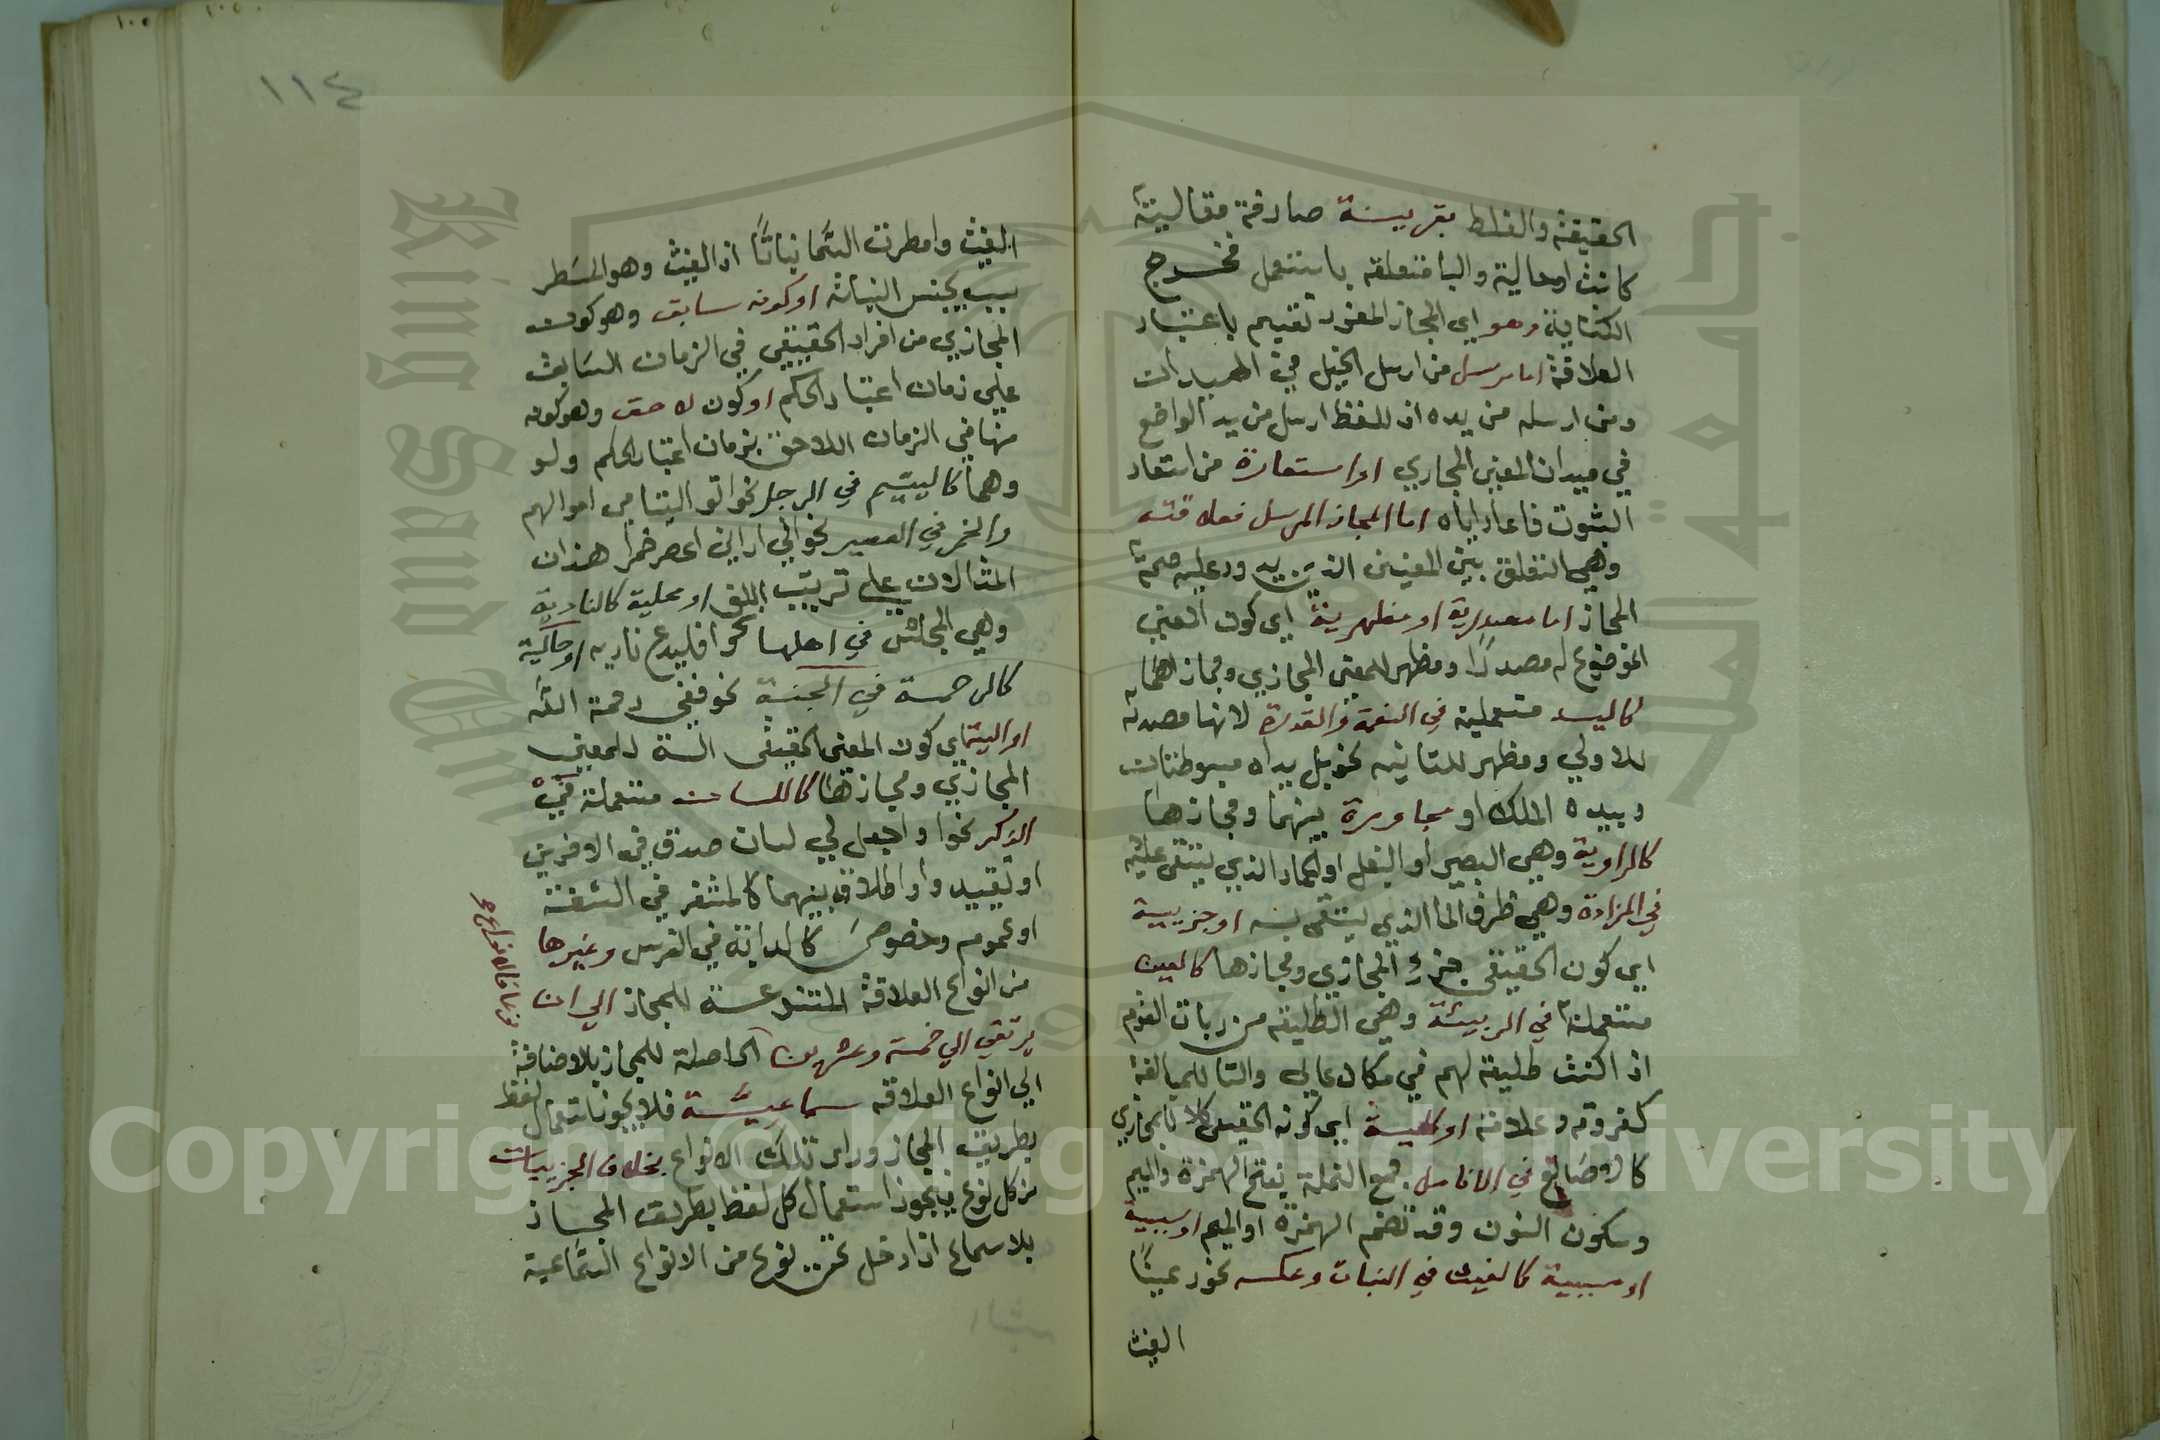 الحقيقة والغلط بقرينة صارفة مقالية
كانت او حالية والبا متعلقة باستعمل فخرج
الكناية وهو اي المجاز المفرد تقسيم باعتبار
العلاقة اما مرسل من ارسل الخيل في الميدان
ومن ارسله من يده اذ للفظ ارسل من يد الواضع
في ميدان المعنى المجازي او استعارة من استعار
الثوب فاعاره اياه اما المجاز المرسل فعلاقته
وهي التعلق بين المعنيين الذي يدور عليه صحة
المجاز اما مصدرية او مظهرية اي كون المعنى
الموضوع له مصدرا ومظهر للمعنى المجازي ومجازهما
كاليد مستعملة في النعمة والقدرة لانها مصدر
للاولى ومظهر للثانية نحو بل يداه مبسوطتان
وبيده الملك او مجاورة بينهما ومجازها
كالراوية وهي البعير او البغل او الحمار الذي يستقى عليه
في المزادة وهي ظرف الما الذي يستقى به او جزيية
اي كون الحقيقي جزء المجازي ومجازها كالعين
مستعملة في الربيئة وهي الطليعة من ربات القوم
اذ اكنت طليعة لهم في مكان عالي والتا للمبالغة
كفروقة وعلامة او كلية اي كونه الحقيقي كلا للمجازي
كالاصابع في الانامل جمع انملة بفتح الهمزة والميم
وسكون النون وقد تضم الهمزة او الميم او سببية
او مسببية كالغيث في النبات وعكسه نحو رعينا
الغيث
١١٤
الغيث وامطرت السما نباتا اذ الغيث وهو المطر
سبب لجنس النبات او كونه سابق وهو كون
المجازي من افراد الحقيقي في الزمان السابق
على زمان اعتبار الحكم او كون لاحق وهو كونه
منها في الزمان اللاحق بزمان اعتبار الحكم ولو
وهما كاليتيم في الرجل نحو اتوا اليتامى اموالهم
والخمر في العصير نحو اني اراني اعصر خمرا هذان
المثالان على ترتيب اللف او محلية كالنادية
وهي المجلس في اهلها نحو فليدع ناديه او حالية
كالرحمة في الجنة نحو ففي رحمة الله
او الية اي كون المعنى الحقيقي الة للمعنى
المجازي ومجازها كاللسان مستعملة في
الذكر نحو واجعل لي لسان صدق في الاخرين
او تقييد واطلاق بينهما كالمشفر في الشفة
او عموم وخصوص كالدابة في الفرس وغيرها
من انواع العلاقة المتنوعة للمجاز الى ان
يرتقي الى خمسة وعشرين الحاصلة للمجاز بالاضافة
الى انواع العلاقة سماعية فلا يجوز استعمال لفظ
بطريق المجاز وراء تلك الانواع بخلاف الجزييات
من كل نوع فيجوز استعمال كل لفظ بطريق المجاز
بلا سماع اذا دخل تحت نوع من الانواع السماعية